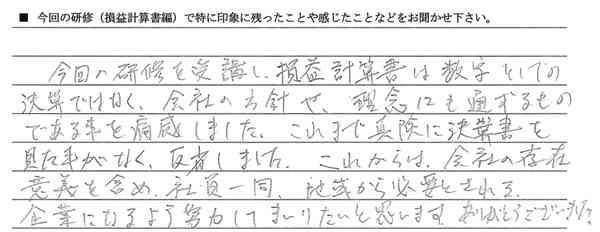 ■ 今回の研修（損益計算書編）で特に印象に残ったことや感じたことなどをお聞かせ下さい。
今回の研修を受講し、損益計算書は数字としての
決算ではなく、会社の方針や、理念にも通ずるもの
である事を痛感しました。これまで真険に決算書を
見た事がなく、反省しました。これからは、会社の存在
意義を含め、社員一同、地域から必要とされる、
企業になるよう努力してまいりたいと思います。ありがとうございました。